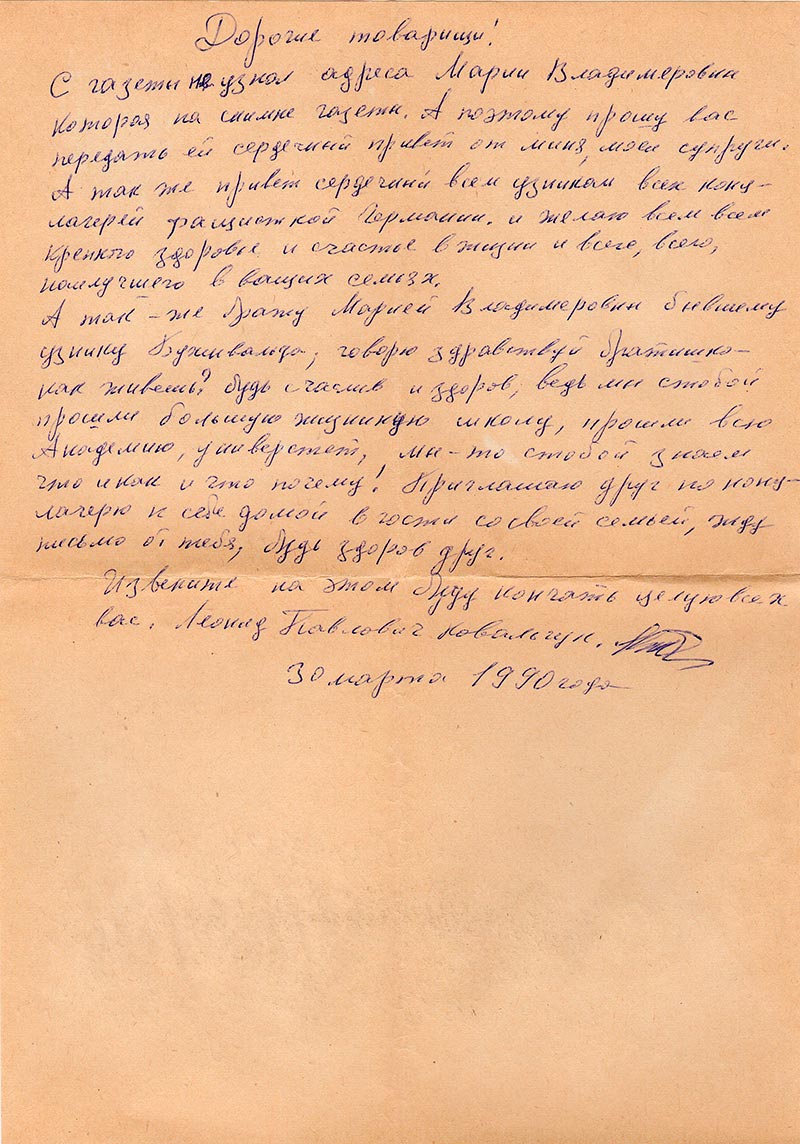 Дорогие товарищи!
С газеты не узнал адреса Марии Владимеровни
которая на снимке газети. А поэтому прошу вас
передать ей сердечний привет от миня, моей супруги.
А так же привет сердечний всем узникам всех конц-
лагерей фащисткой Германии. и желаю всем всем
крепкого здоровье и счастье в жизни и всего, всего,
наилучшего в ващих семьях.
А так-же брату Марией Владимеровни бывшему
узнику Бухинвальда, говорю здравствуй братишко-
как живешь? будь счаслив и здоров, ведь ми стобой
прошли большую жизникую школу, прошли всю
Академию, универстет, ми-то стобой знаем
что и как и что почему! Приглашаю друг по конц-
лагерю к себе домой в гости со своей семьей, жду
письмо от тебя, будь здоров друг.
Извените на этом буду кончать целую всех
вас. Леонид Павлович Ковальчук.
30 марта 1990 года